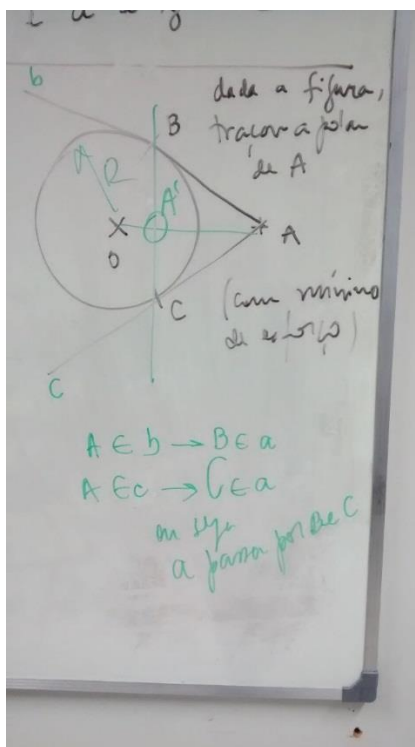 b
dada a figura,
B
traçar a polar
de A
R
A'
A
O
C
(com mínimo
de esforço)
c
A ∈ b → B ∈ a
A ∈ c → C ∈ a
ou seja
a passa por B e C